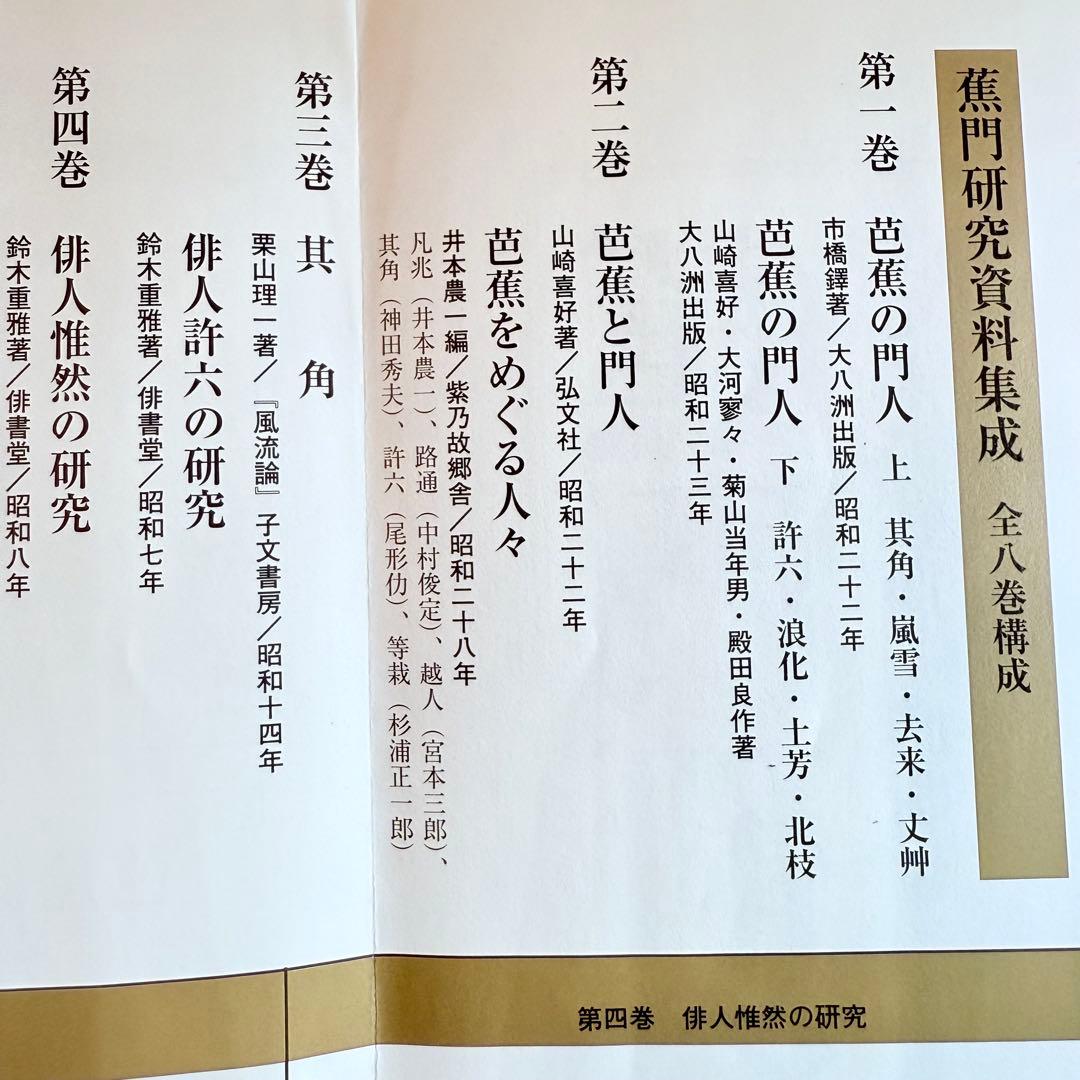 蕉門研究資料集成 全八巻構成
第一巻 芭蕉の門人 上 其角・嵐雪・去来・丈艸
市橋鐸著/大八洲出版/昭和二十二年
芭蕉の門人 下 許六・浪化・土芳・北枝
山崎喜好・大河寥々・菊山当年男・殿田良作著
大八洲出版/昭和二十三年
第二巻 芭蕉と門人
山崎喜好著/弘文社/昭和二十二年
芭蕉をめぐる人々
井本農一編/紫乃故郷舎/昭和二十八年
凡兆(井本農一)、路通(中村俊定)、越人(宮本三郎)、
其角(神田秀夫)、許六(尾形仂)、等栽(杉浦正一郎)
第三巻 其角
栗山理一著/『風流論』子文書房/昭和十四年
俳人許六の研究
鈴木重雅著/俳書堂/昭和七年
第四巻 俳人惟然の研究
鈴木重雅著/俳書堂/昭和八年
第四巻 俳人惟然の研究